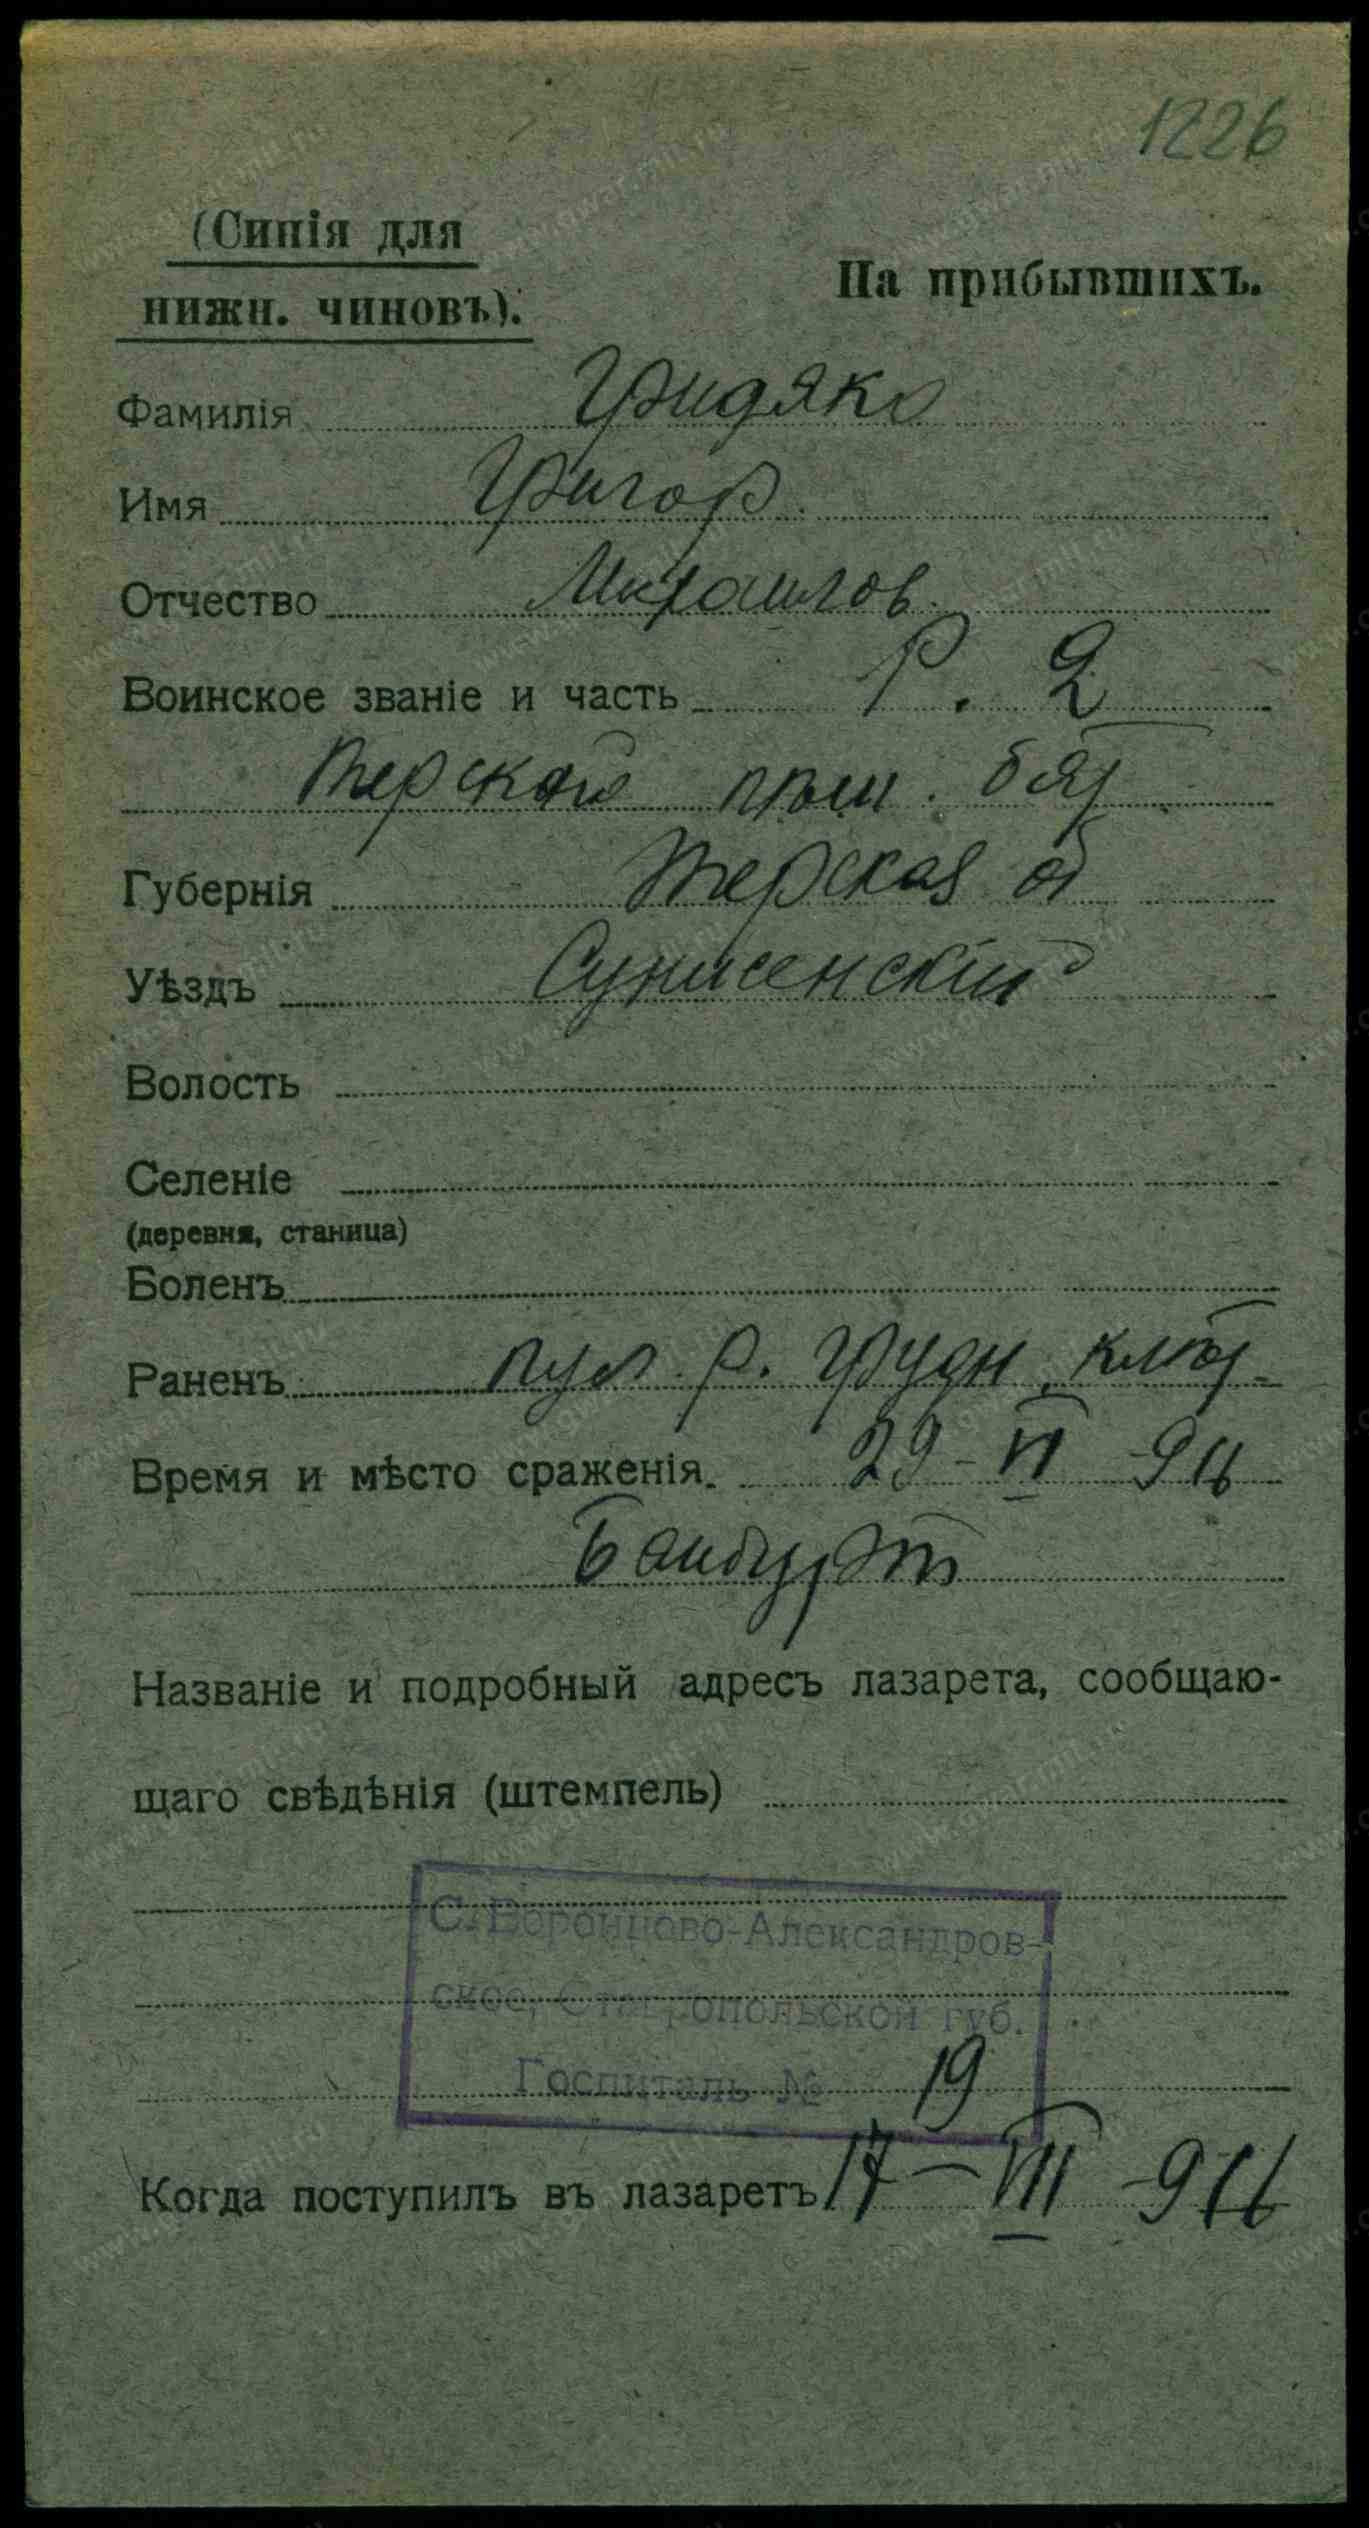 1226
(Синія для
нижн. чиновъ).
На прибывшихъ.
Фамилія Гридяко
Имя Григор
Отчество Михаилов.
Воинское званіе и часть Р. 2
Терской пѣш. бат
Губернія Терская об
Уѣздъ Сунженскій
Волость
Селеніе
(деревня, станица)
Боленъ
Раненъ пул. р. грудн. клѣт
Время и мѣсто сраженія. 29-VI 916
Байбурт
Названіе и подробный адресъ лазарета, сообщаю-
щаго свѣдѣнія (штемпель)
С. Воронцово-Александров-
ское, Ставропольской губ.
Госпиталь № 19
Когда поступилъ въ лазаретъ 17-VIII-916